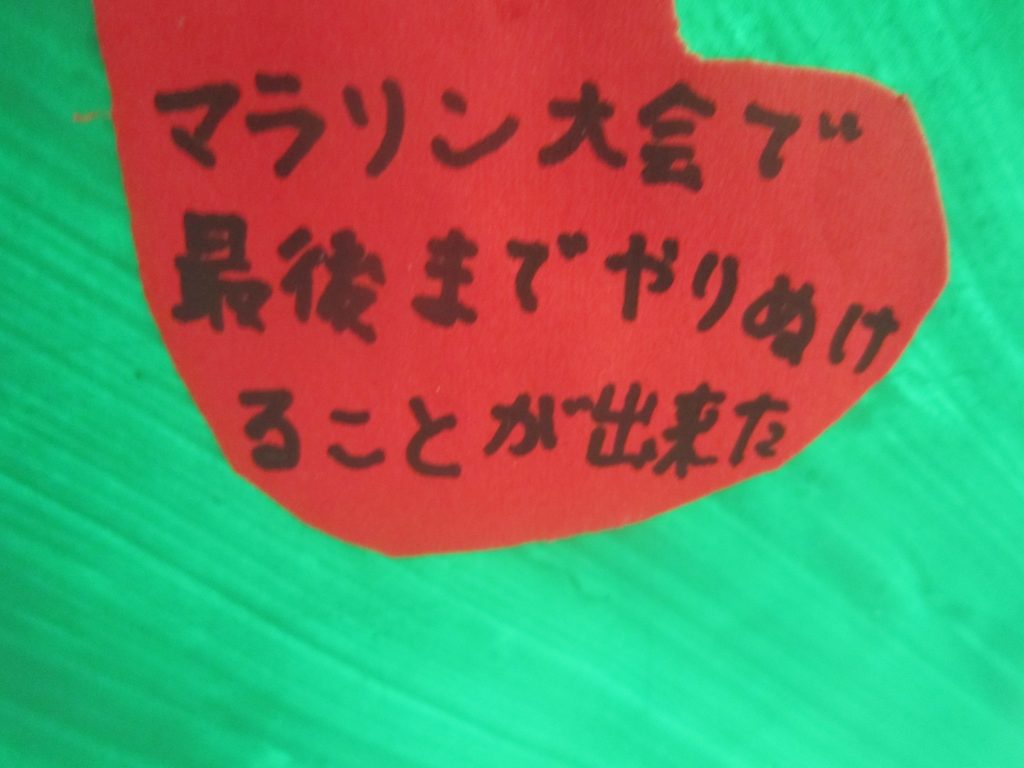 マラリン大会で
最後までやりぬけ
ることが出来た